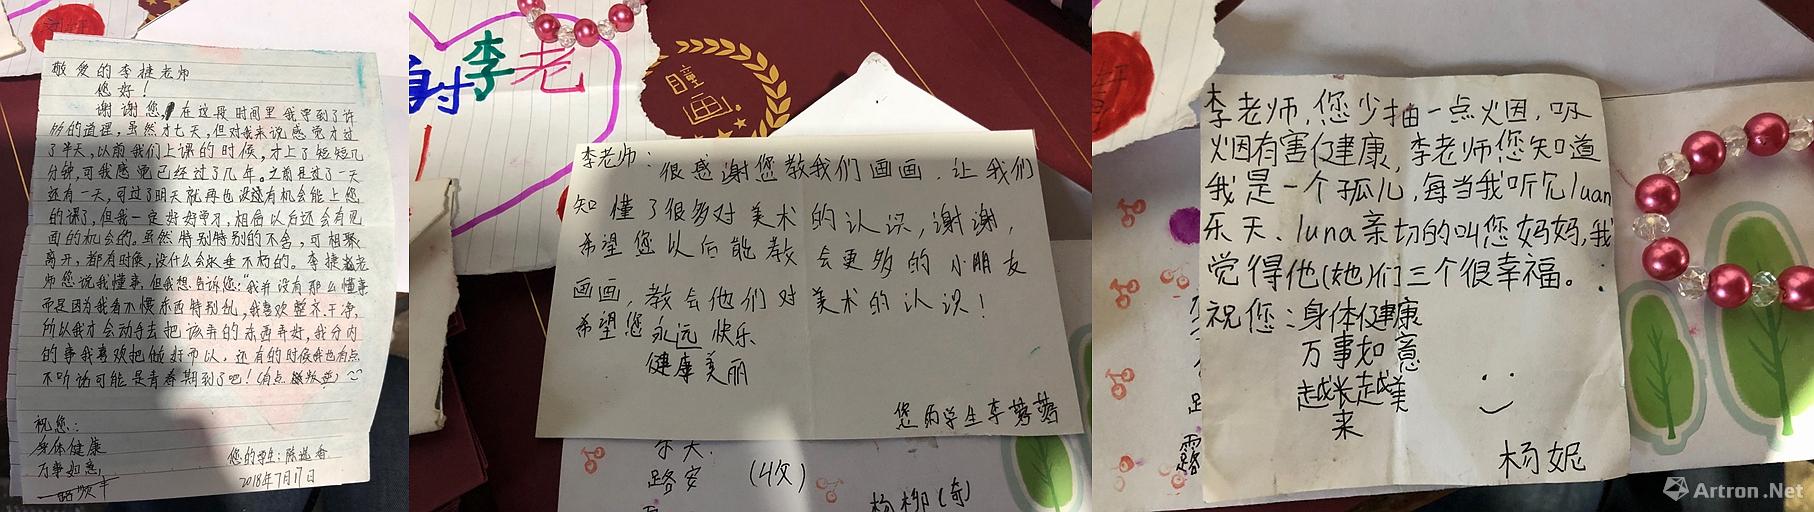 敬爱的李捷老师
您好！
谢谢您，在这段时间里我学到了许
多的道理，虽然才七天，但对我来说感觉才过
了半天，以前我们上课的时候，才上了短短几
分钟，可我感觉已经过了几年。之前且过了一天
还有一天，可过了明天就再也没有机会能上您
的课了，但我一定好好学习，相信以后还会有见
面的机会的。虽然特别特别的不舍，可相聚
离开，都有时候，没什么会永垂不朽的。李捷老
师您说我懂事，但我想告诉您："我并没有那么懂事
而是因为我看不惯东西特别乱，我喜欢整齐、干净，
所以我才会动手去把该弄的东西弄好，我分内
的事我喜欢把做好而以，还有的时候我也有点
不听话可能是青春期到了吧！(有点叛逆)
祝您：
身体健康
万事如意
您的学生：陈
2018年7月17日
谢李老
瞳画
李老师：很感谢您教我们画画，让我们
知懂了很多对美术的认识，谢谢，
希望您以后能教会更多的小朋友
画画，教会他们对美术的认识！
希望您永远快乐
健康美丽
您的学生李蓉蓉
乐天.
路安 (4次)
杨柳(奇)
李老师，您少抽一点烟，吸
烟有害健康，李老师您知道
我是一个孤儿，每当我听见luan
乐天、luna亲切的叫您妈妈，我
觉得他(她)们三个很幸福。
祝您：身体健康
万事如意
越长越美
来
杨妮
露
Artron.Net